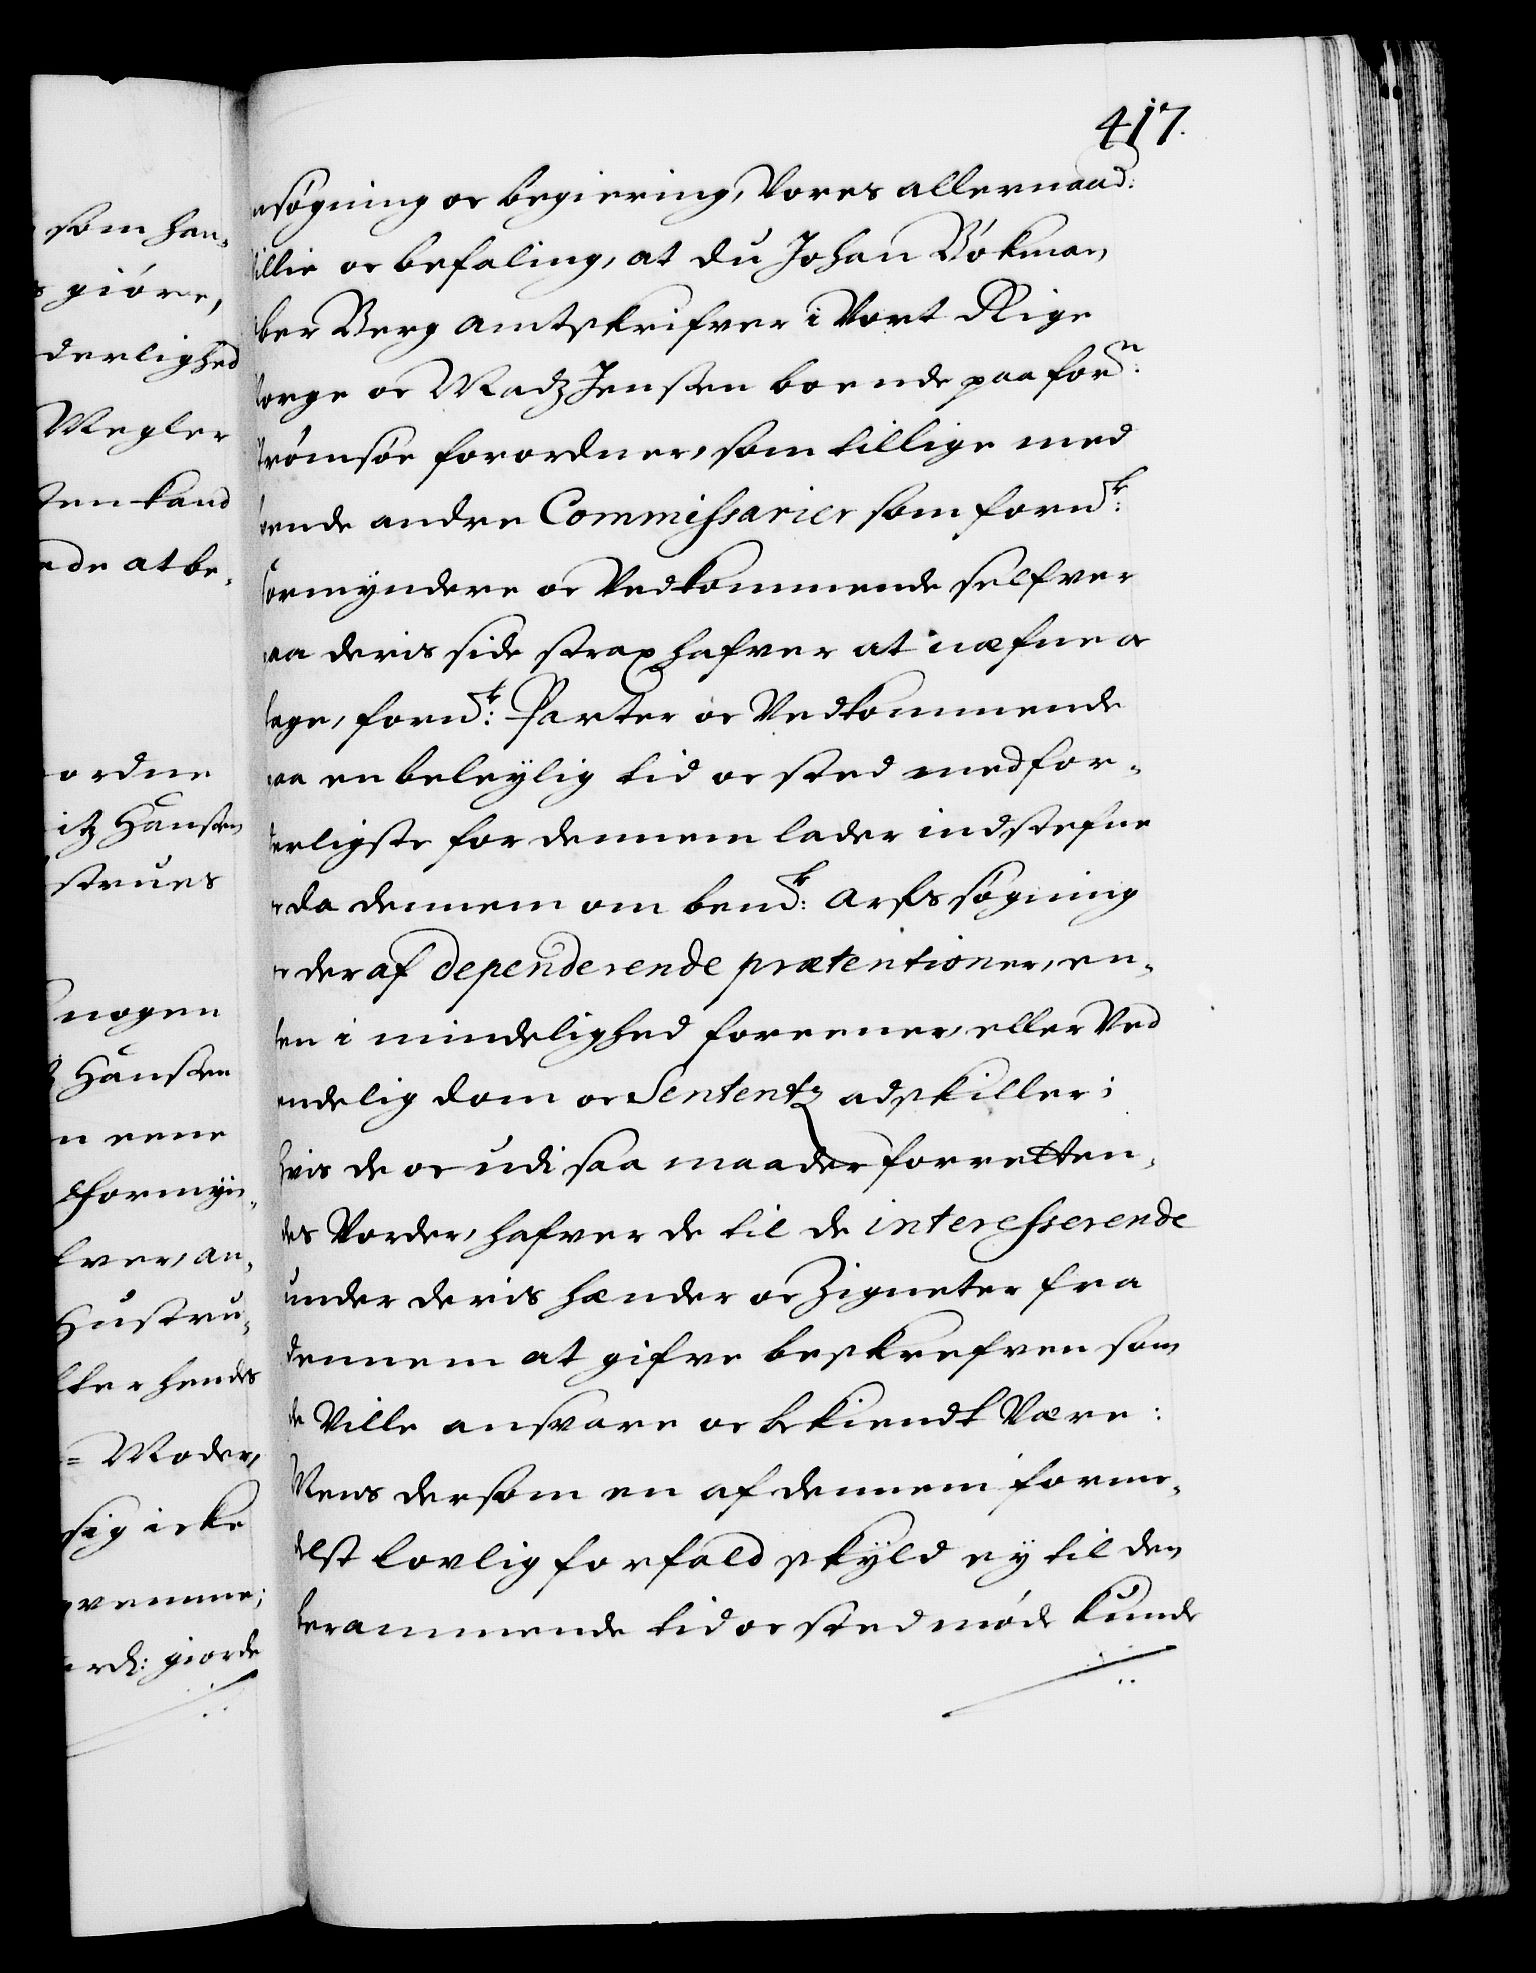 som han-
giöre,
derlighed
Megler
ten kand
ede at be-
ordne
itz Hansen
strues
nogen
Hansen
n eene
Formyn-
lver, an-
Hustru-
hendes
= Moder,
sig icke
vemme;
giorde
417.
nsøgning oc begiering, Vores allernaad:
illie oc befaling, at du Johan Bökman,
ber Berg amtskrifver i Vort Rige
orge oc Madz Jensen boende paa forn:
trömsöe forordner, som tillige med
ende andre Commissarier som fornd:
ormyndere oc Vedkommende selfver
aa deris side strax hafver at næfne oc
age, fornd: Parter oc Vedkommende
aa en beleylig tid oc sted med for-
erligste for dennem lader indstefne
da dennem om bemd: arfs søgning
der af dependerende prætentioner, en-
ten i mindelighed foreener, eller Ved
endelig dom oc Sententz adskiller;
hvis de oc udi saa maader forretten-
des Vorder, hafver de til de interesserende
under deris hænder oc Zigneter fra
dennem at gifve beskrefven som
de Ville ansvare oc bekiendt Være:
Mens dersom en af dennem forme-
delst lovlig forfald skyld ey til den
berammende tid oc sted møde kunde